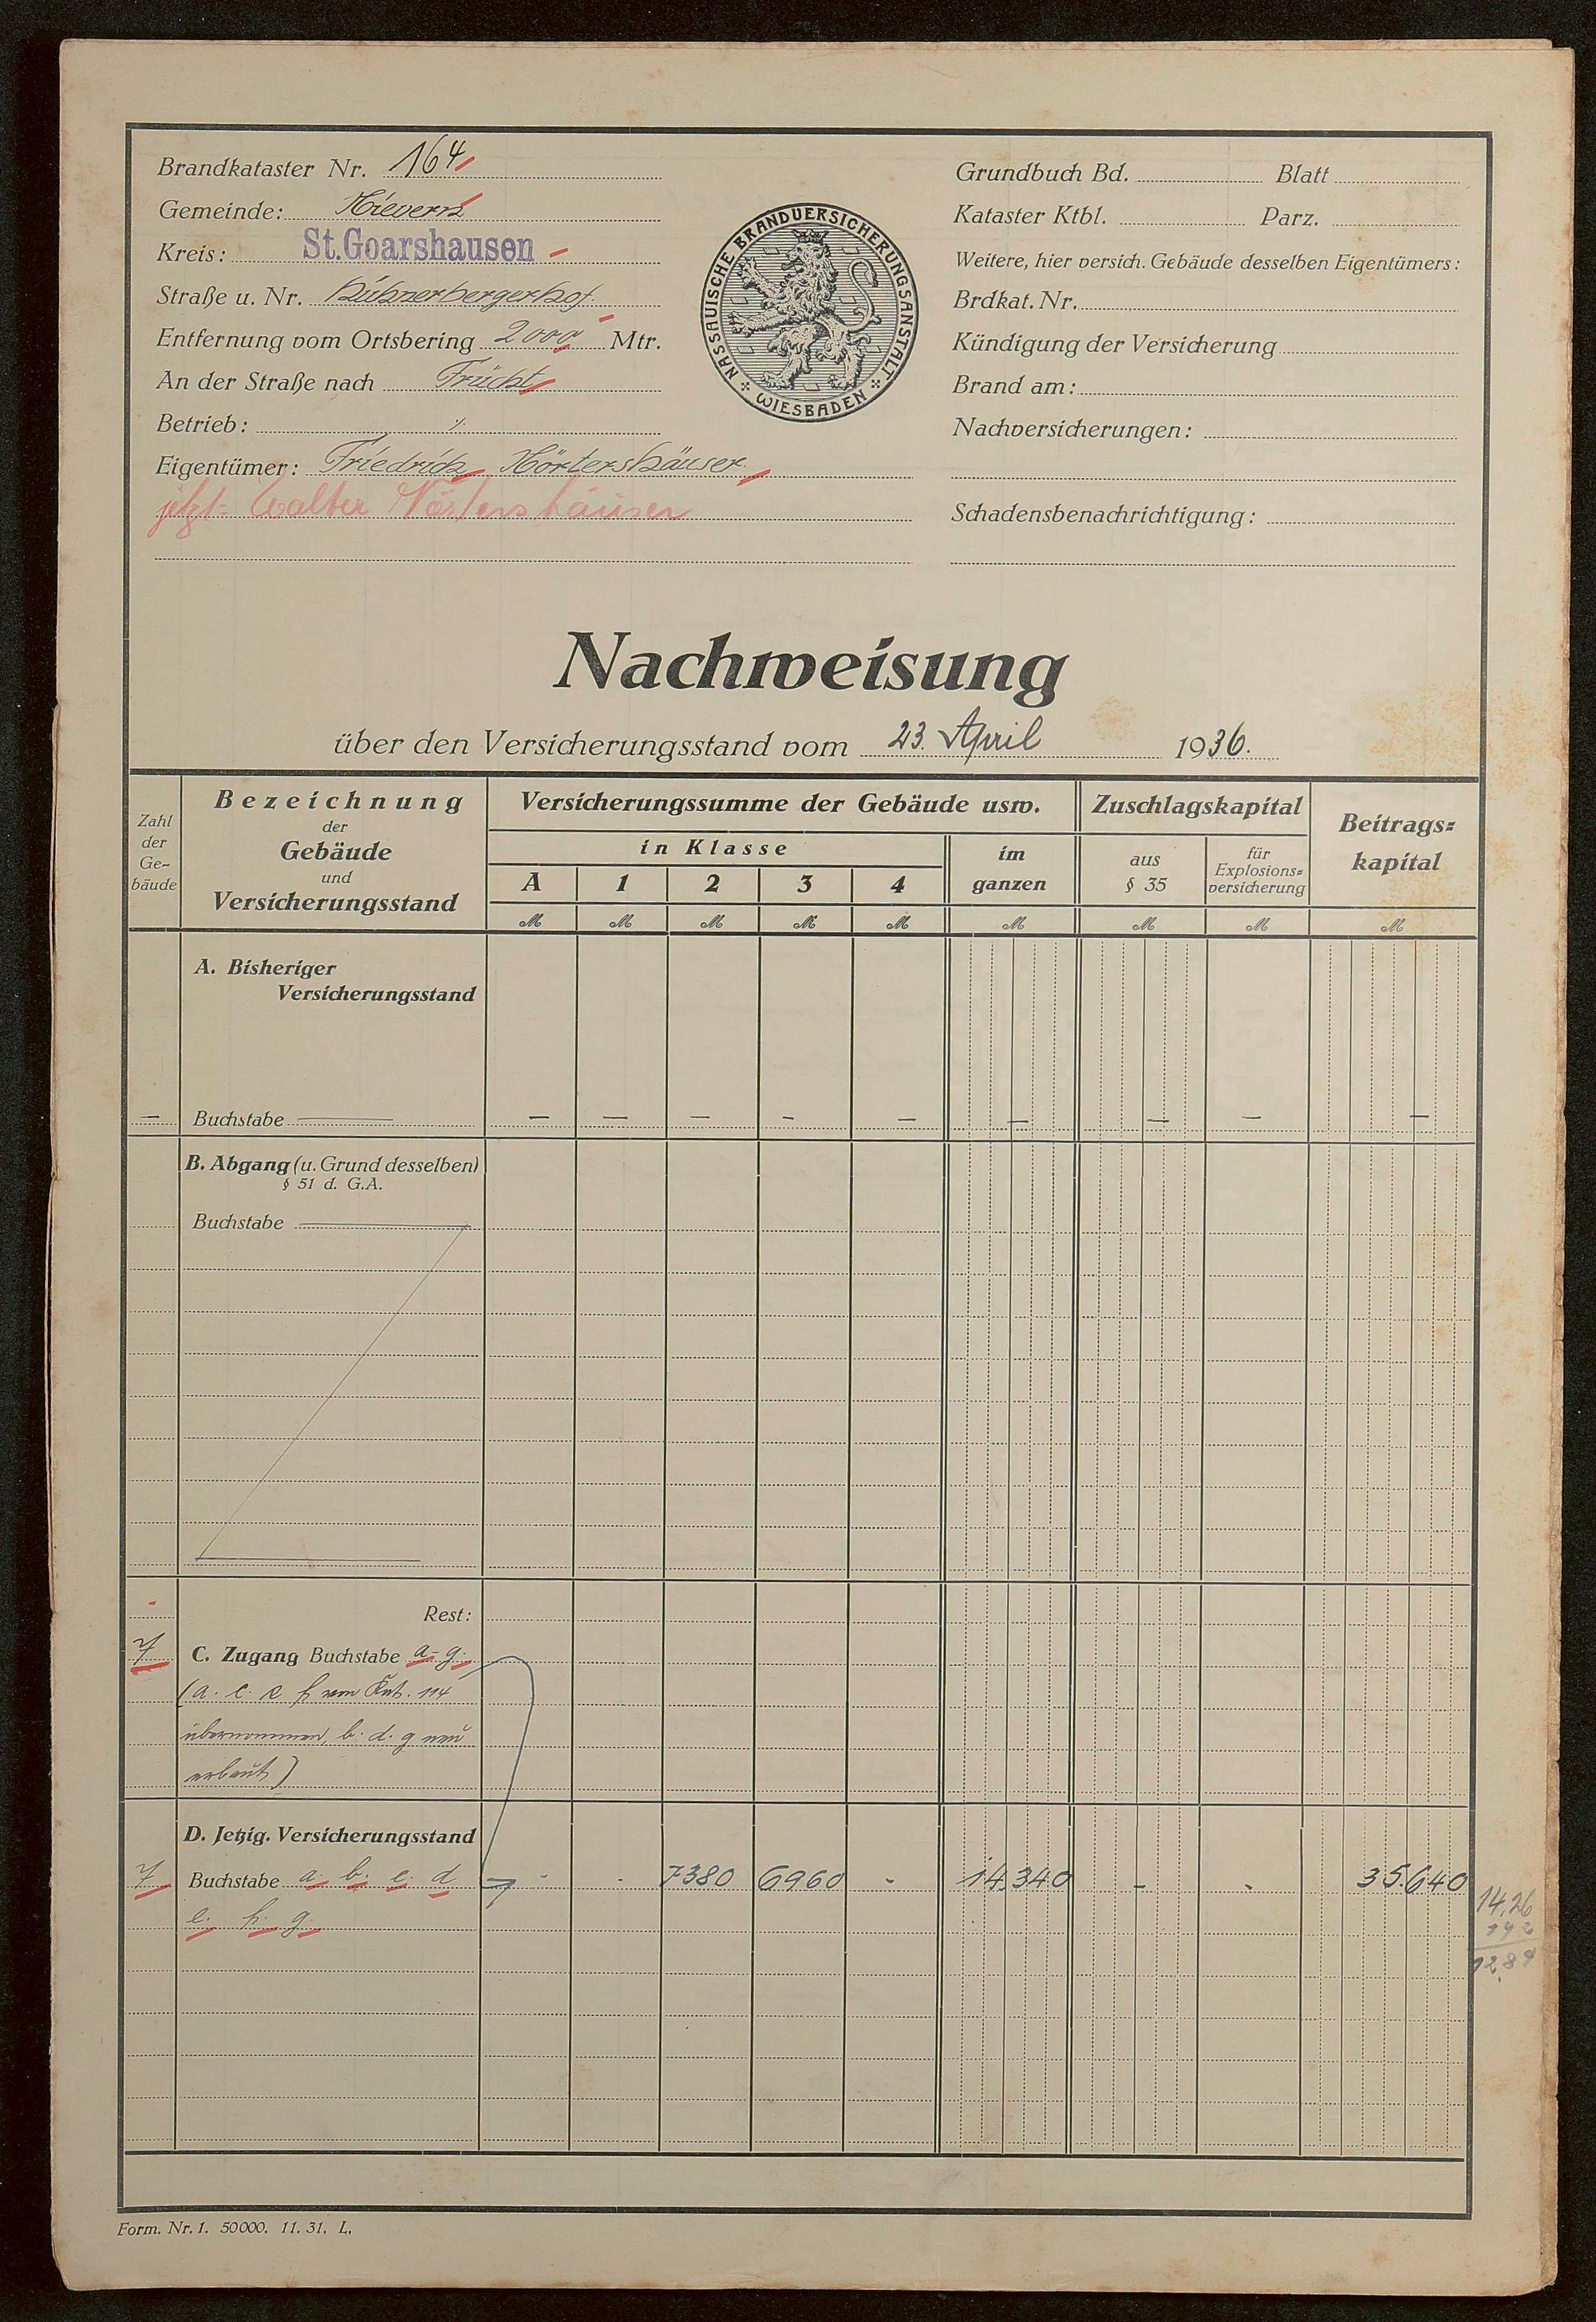 Brandkataster Nr. 164
Gemeinde: Nievern
Kreis: St.Goarshausen
Straße u. Nr. Hühnerbergerhof.
Entfernung vom Ortsbering 2000 Mtr.
An der Straße nach Frücht
Betrieb: ·/.
Eigentümer: Friedrich Nörtershäuser.
jetzt: Walter Nörtershäuser
NASSAUISCHE BRANDVERSICHERUNGSANSTALT
WIESBADEN
Grundbuch Bd. Blatt
Kataster Ktbl. Parz.
Weitere, hier versich. Gebäude desselben Eigentümers:
Brdkat. Nr.
Kündigung der Versicherung
Brand am:
Nachversicherungen:
Schadensbenachrichtigung:
Nachweisung
über den Versicherungsstand vom 23. April 1936.
Zahl der Ge-bäude
Bezeichnung
der
Gebäude
und
Versicherungsstand
Versicherungssumme der Gebäude usw.
in Klasse
A 1 2 3 4
im ganzen
Zuschlagskapital
aus § 35
für Explosions=versicherung
Beitrags=kapital
M M M M M M M M M
A. Bisheriger
Versicherungsstand
— Buchstabe — — — — — — — — — —
B. Abgang (u. Grund desselben)
§ 51 d. G.A.
Buchstabe —
- Rest:
7 C. Zugang Buchstabe a-g.
(a. c. e. f. von Kat. 114
übernommen, b. d. g neu
erbaut)
D. Jetzig. Versicherungsstand
7 Buchstabe a. b. c. d - - 7380 6960 - 14.340 - - 35.640
e. f. g.
14,26
12,84
Form. Nr. 1. 50000. 11. 31. L.